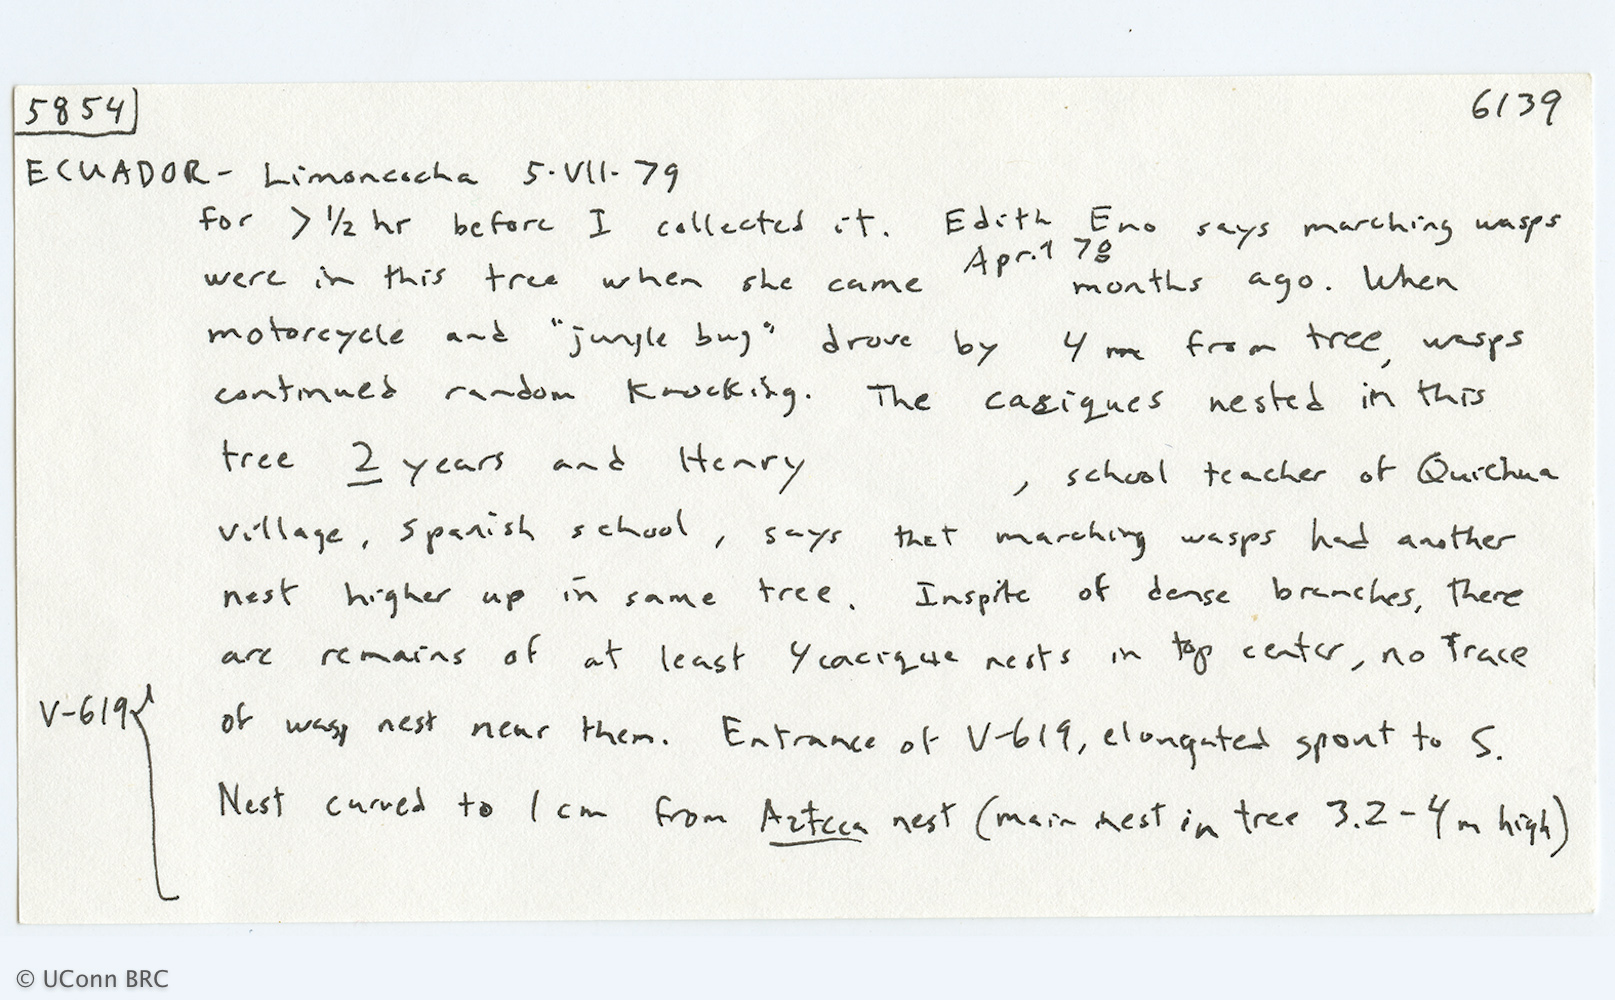 5854
6139
ECUADOR - Limoncocha 5-VII-79
for > 1/2 hr before I collected it. Edith Eno says marching wasps
were in this tree when she came April 78 months ago. When
motorcycle and "jungle bug" drove by 4 m from tree, wasps
continued random knocking. The casiques nested in this
tree 2 years and Henry , school teacher of Quichua
village, Spanish school, says that marching wasps had another
nest higher up in same tree. Inspite of dense branches, there
are remains of at least 4 cacique nests in top center, no trace
V-619 { of wasp nest near them. Entrance of V-619, elongated spout to S.
Nest curved to 1 cm from Azteca nest (main nest in tree 3.2-4 m high)
© UConn BRC